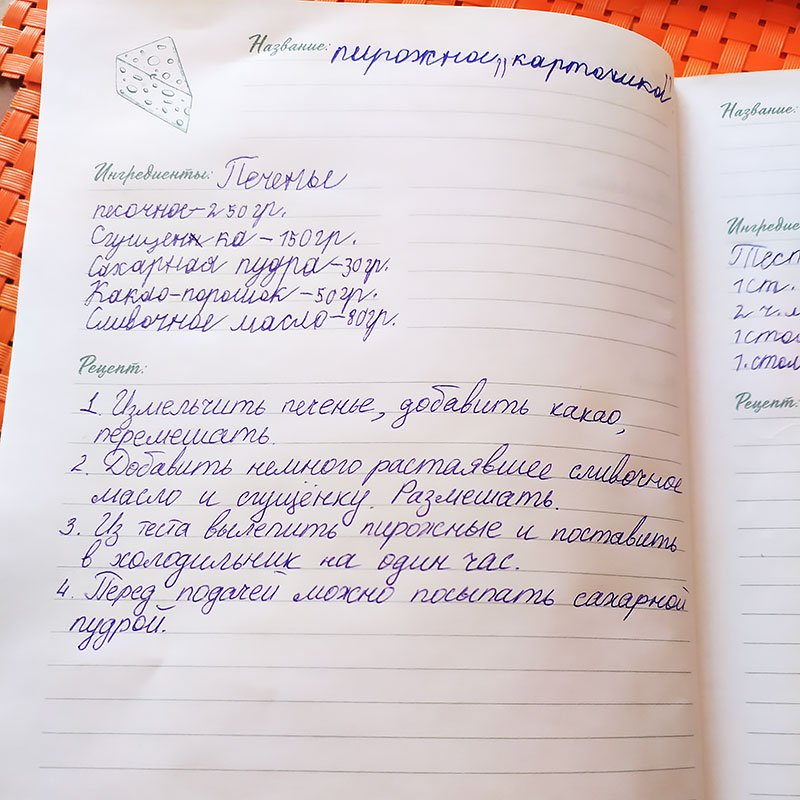 Название: пирожное „карточика"
Ингредиенты: Печенье
песочное-250гр.
Сгущенка-150гр.
Сахарная пудра-30гр.
Какао-порошок-50гр.
Сливочное масло-80гр.
Рецепт:
1. Измельчить печенье, добавить какао,
перемешать.
2. Добавить немного растаявшее сливочное
масло и сгущёнку. Размешать.
3. Из теста вылепить пирожные и поставить
в холодильник на один час.
4. Перед подачей можно посыпать сахарной
пудрой.
Название:
1 ст.
2 ч.
Рецепт: